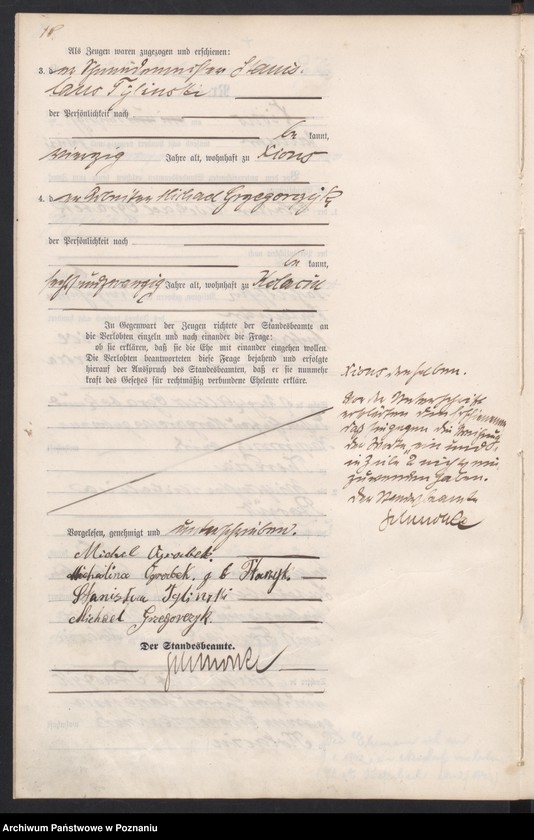 18.
Als Zeugen waren zugezogen und erschienen:
3. der Stanis-
laus Tylinski
der Persönlichkeit nach
be kannt,
vierzig Jahre alt, wohnhaft zu Xions
4. der Arbeiter Michael Grzegorczyk
der Persönlichkeit nach
be kannt,
sechsundzwanzig Jahre alt, wohnhaft zu
In Gegenwart der Zeugen richtete der Standesbeamte an
die Verlobten einzeln und nach einander die Frage:
ob sie erklären, daß sie die Ehe mit einander eingehen wollen.
Die Verlobten beantworteten diese Frage bejahend und erfolgte
hierauf der Ausspruch des Standesbeamten, daß er sie nunmehr
kraft des Gesetzes für rechtmäßig verbundene Eheleute erkläre.
Vorgelesen, genehmigt und unterschrieben.
Michel Ograbek.
Michalina Ograbek, g b
Stanislaus Tylinzki
Michael Grzegorczyk.
Der Standesbeamte.
Xions, denselben.
Vor der Unterschrift
erklärten die Erschienenen
daß sie gegen die Streichung
der Worte „ein und
in Zeile 2 nichts ein
zuwenden haben.
Der Standesbeamte
Archiwum Państwowe w Poznaniu